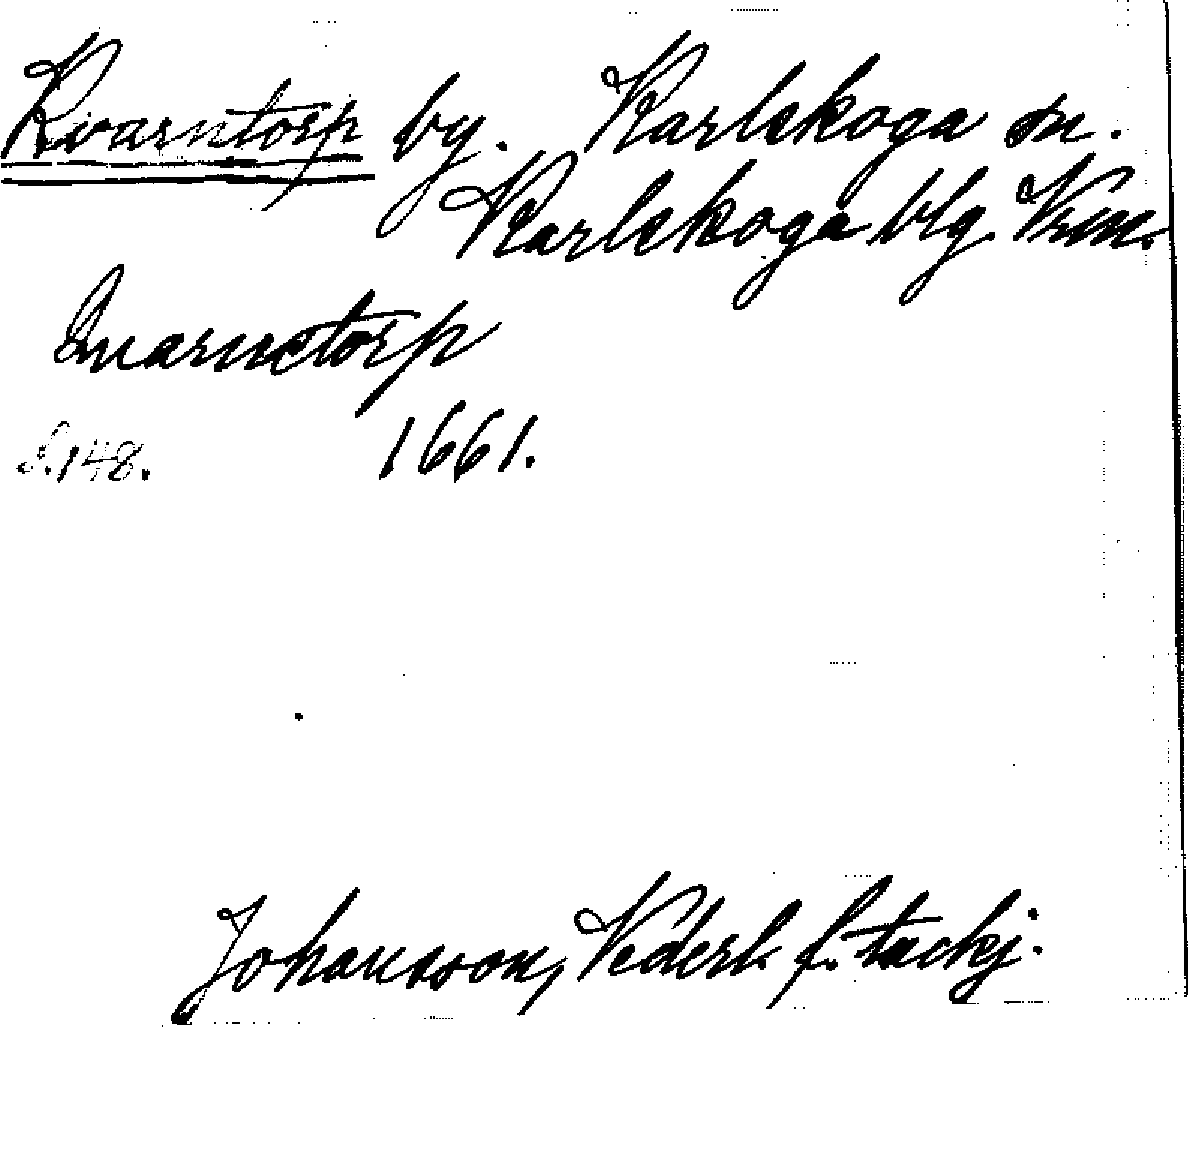 Kvarntorp by. Karlskoga sn.
Karlskoga blg. Vrm.
Qvarnetorp
S. 148. 1661.
Johansson, Nederk f. tackj.